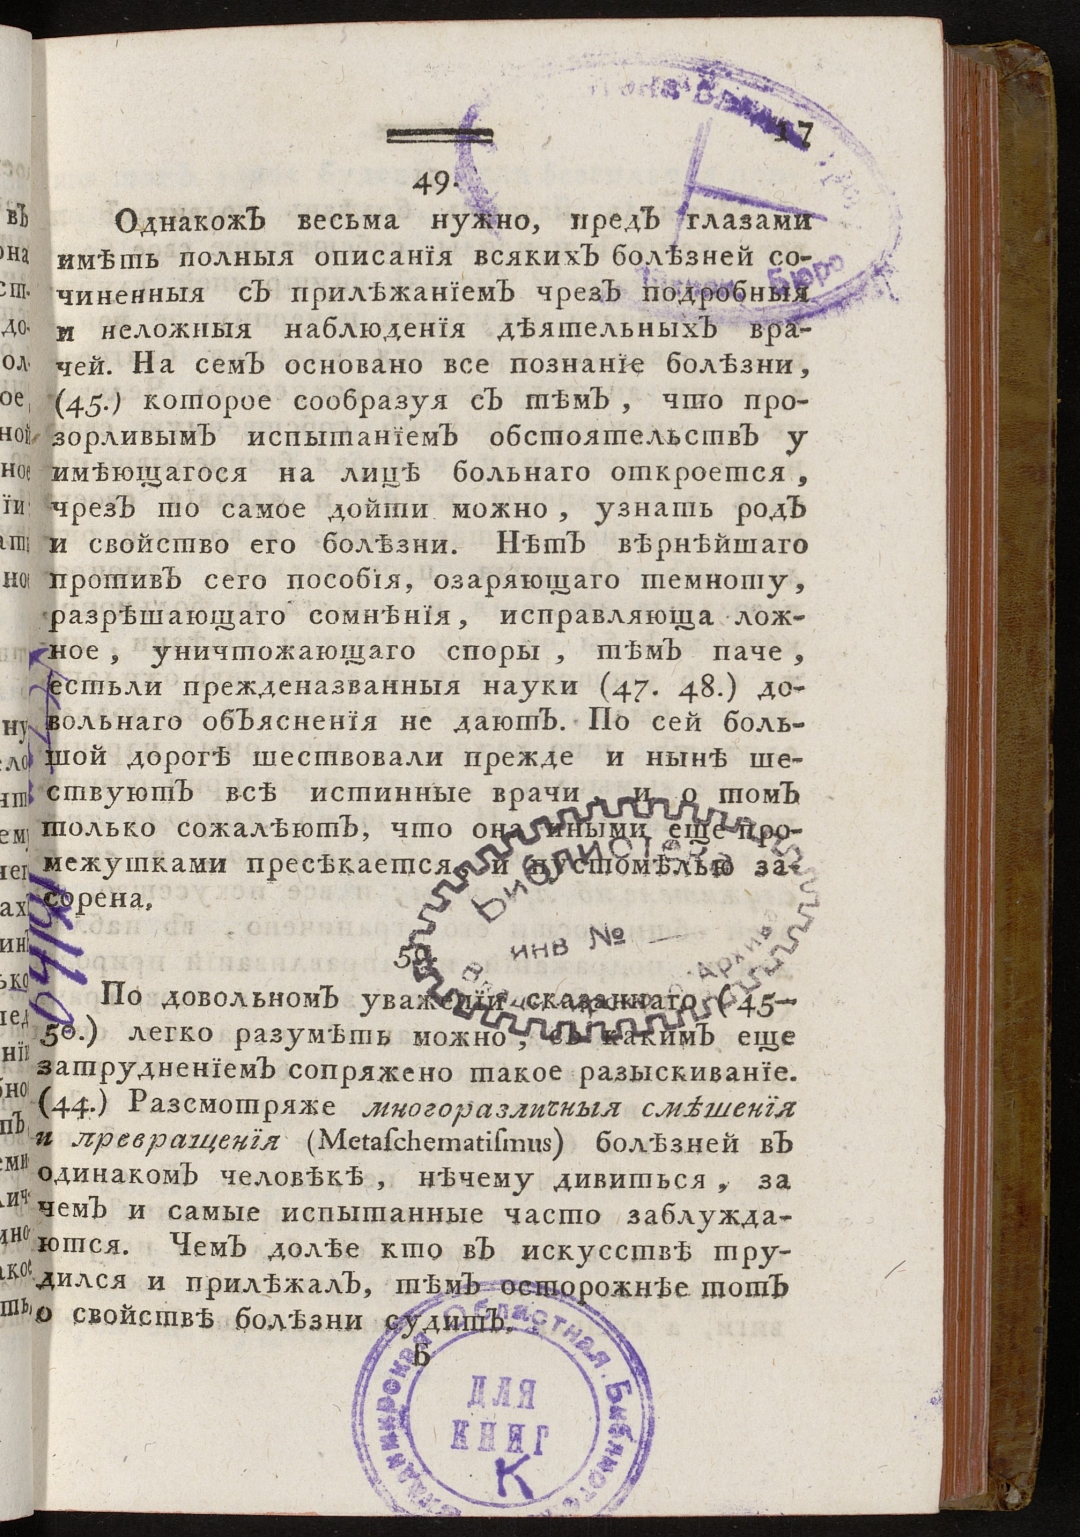 17
49.
Однакожъ весьма нужно, предъ глазами
имѣть полныя описанїя всякихъ болѣзней со-
чиненныя съ прилѣжанїемъ чрезъ подробныя
и неложныя наблюденїя дѣятельныхъ вра-
чей. На семъ основано все познанїе болѣзни,
(45.) которое сообразуя съ тѣмъ, что про-
зорливымъ испытанїемъ обстоятельствъ у
имѣющагося на лицѣ больнаго откроется,
чрезъ то самое дойти можно, узнать родъ
и свойство его болѣзни. Нѣтъ вѣрнѣйшаго
противъ сего пособїя, озаряющаго темноту,
разрѣшающаго сомнѣнїя, исправляюща лож-
ное, уничтожающаго споры, тѣмъ паче,
естьли прежденазванныя науки (47. 48.) до-
вольнаго объясненїя не даютъ. По сей боль-
шой дорогѣ шествовали прежде и нынѣ ше-
ствуютъ всѣ истинные врачи, и о томъ
только сожалѣютъ, что она иными еще про-
межушками пресѣкается, и пустомѣлью за-
сорена.
50.
По довольномъ уваженїи сказаннаго (45—
50.) легко разумѣть можно, съ какимъ еще
затрудненїемъ сопряжено такое разыскиванїе.
(44.) Разсмотряже многоразличныя смѣшенїя
и превращенїя (Metaſchematiſmus) болѣзней въ
одинакомъ человѣкѣ, нѣчему дивиться, за
чемъ и самые испытанные часто заблужда-
ются. Чемъ долѣе кто въ искусствѣ тру-
дился и прилѣжалъ, тѣмъ осторожнѣе тотъ
о свойствѣ болѣзни судитъ.
Б
Бюро
Библиотека
инв №
Архив
Областная Библиотека
ДЛЯ
КНИГ
К